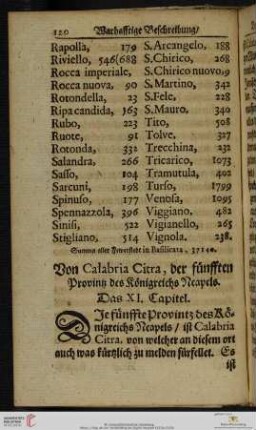 120 Warhafftige Beschreibung/
Rapolla, 179 S. Arcangelo, 188
Riviello, 546(688 S. Chirico, 268
Rocca imperiale, S. Chirico nuovo,9
Rocca nuova, 90 S. Martino, 342
Rotondella, 23 S. Fele, 228
Ripa candida, 163 S. Mauro, 340
Rubo, 223 Tito, 508
Ruote, 91 Tolve, 327
Rotonda, 332 Trecchina, 232
Salandra, 266 Tricarico, 1073
Sasso, 104 Tramutula, 402
Sarcuni, 198 Turso, 1799
Spinuso, 177 Venosa, 1095
Spennazzola, 396 Viggiano, 482
Sinisi, 522 Vigianello, 265
Stigliano, 514 Vignola, 238.
Summa aller Fewerstett in Basilicata,
Von Calabria Citra, der fünfften
Provintz des Königreichs Neapels.
Das XI. Capitel.
DIe fünffte Provintz des Kö-
nigreichs Neapels / ist Calabria
Citra, von welcher an diesem ort
auch was kürtzlich zu melden fürfellet. Es
ist